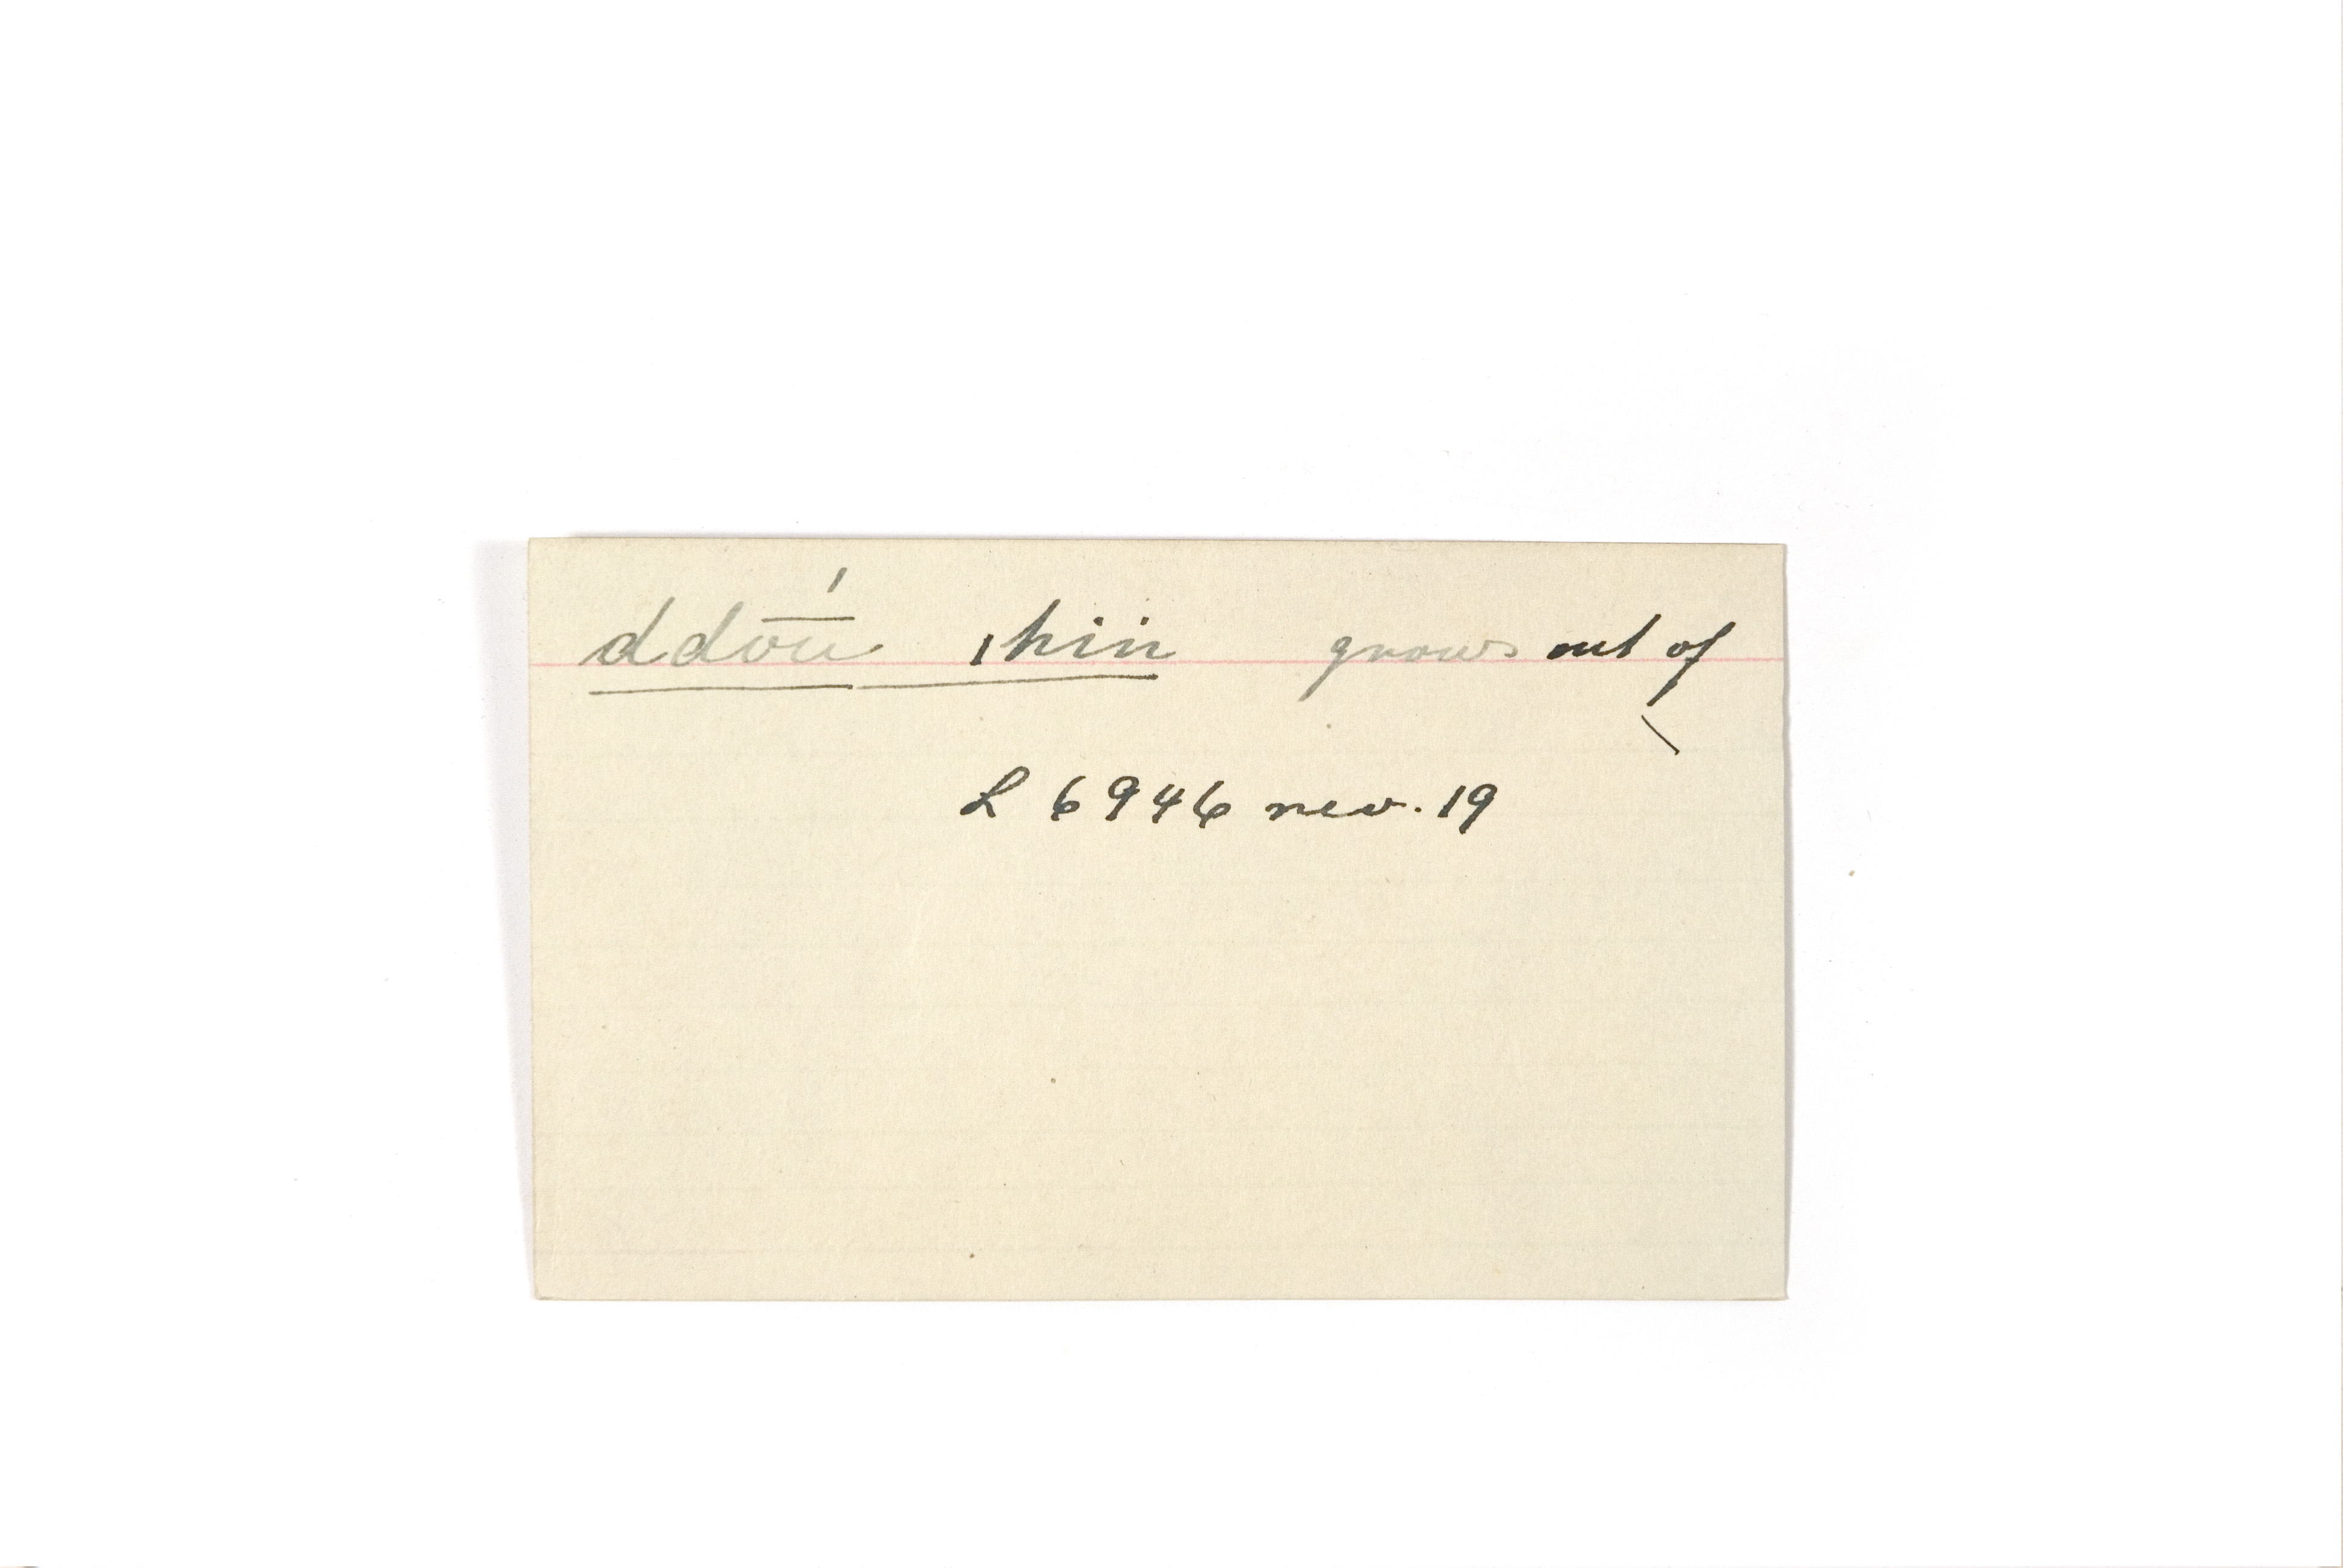 ddo͞ú ˌhin grows out of
L 6946 rev. 19